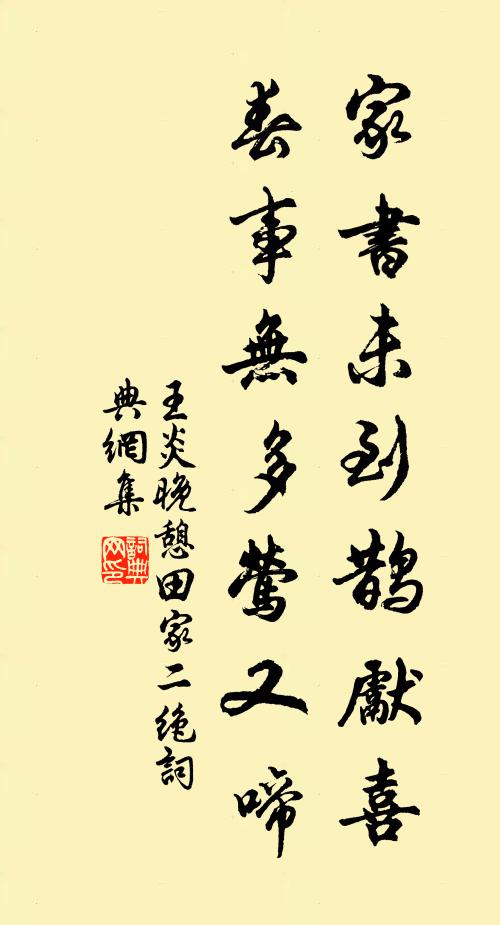 家書未到鵲獻喜
春事無多鶯又啼
王炎晚憩田家二絶詞
典網集
詞典
网印